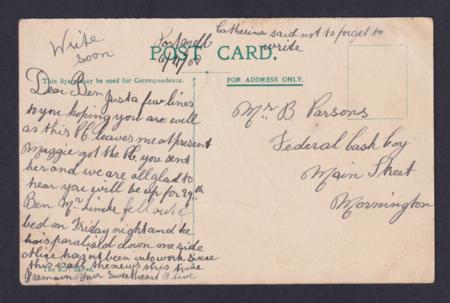 Write
soon
Catherina said not to forget to
write
POST CARD.
This Space may be used for Correspondence.
FOR ADDRESS ONLY.
Dear Ben Just a few lines
to you hoping you are well
as this P.C. leaves me at present
Maggie got the P.C. you sent
her and we are all glad to
hear you will be up for 29th
Ben Mr fell out of
bed on Friday night and he
is paralised down one side
Alice has not been into work since
this is all the news this time
I remain Your Sweetheart Olive
Mr B Parsons
Federal cash boy
Main Street
Mornington